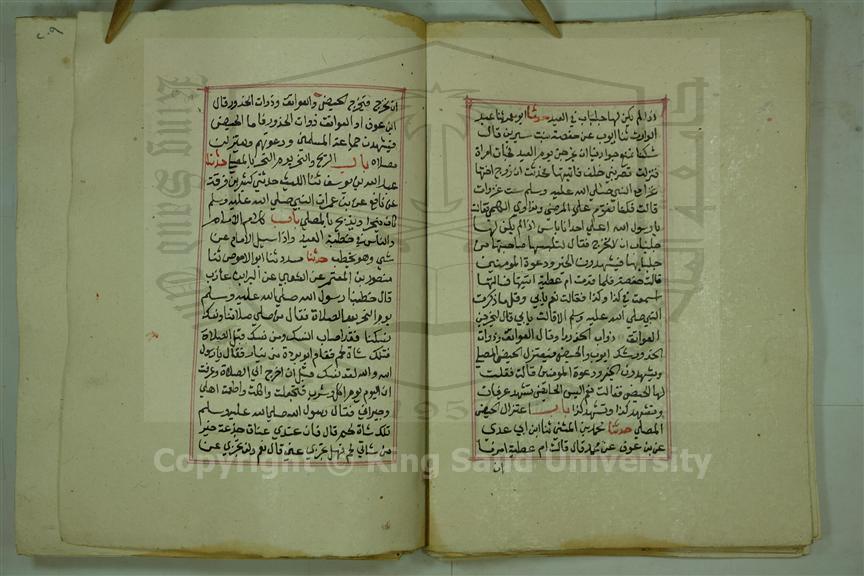 اذا لم يكن لها جلباب في العيد حدثنا ابو معمر ثنا عبد
الوارث ثنا ايوب عن حفصة بنت سيرين قالت
كنا نمنع جوارينا ان يخرجن يوم العيد فجاءت امراة
فنزلت قصر بني خلف فاتيتها فحدثت ان زوج اختها
غزا مع النبي صلى الله عليه وسلم ست غزوات
قالت فكنا نقوم على المرضى ونداوي الكلمى فقالت
يا رسول الله اعلى احدانا باس اذا لم يكن لها
جلباب ان لا تخرج فقال لتلبسها صاحبتها من
جلبابها فليشهدن الخير ودعوة المومنين
قالت حفصة فلما قدمت ام عطية اتيتها فسالتها
اسمعت في كذا وكذا فقالت نعم بابي وقل ما ذكرت
النبي صلى الله عليه وسلم الا قالت بابي قال لتخرج
العواتق ذوات الخدور او قال العواتق وذوات
الخدور شك ايوب والحيض فيعتزل الحيض المصلى
وليشهدن الخير ودعوة المومنين قالت فقلت
لها الحيض فقالت نعم اليس الحائض تشهد عرفات
وتشهد كذا وتشهد كذا باب اعتزال الحيض
المصلى حدثنا محمد بن المثنى ثنا ابن ابي عدي
عن بن عون عن محمد قال قالت ام عطية امرنا
ان
ان نخرج فنخرج الحيض والعواتق وذوات الخدور قال
ابن عون او العواتق ذوات الخدور فاما الحيض
فيشهدن جماعة المسلمين ودعوتهم ويعتزلن
مصلاهم باب النحر والذبح يوم النحر بالمصلى حدثنا
عبد الله بن يوسف ثنا الليث حدثني كثير بن فرقد
عن نافع عن بن عمر ان النبي صلى الله عليه وسلم
كان ينحر او يذبح بالمصلى باب كلام الامام
والناس في خطبة العيد واذا سيل الامام عن
شي وهو يخطب حدثنا مسدد ثنا ابو الاحوص ثنا
منصور بن المعتمر عن الشعبي عن البراء بن عازب
قال خطبنا رسول الله صلى الله عليه وسلم
يوم النحر بعد الصلاة فقال من صلى صلاتنا ونسك
نسكنا فقد اصاب النسك ومن نسك قبل الصلاة
فتلك شاة لحم فقام ابو بردة بن نيار فقال يا رسول
الله والله لقد نسكت قبل ان اخرج الى الصلاة وعرفت
ان اليوم يوم اكل وشرب فتعجلت واكلت واطعمت اهلي
وجيراني فقال رسول الله صلى الله عليه وسلم
تلك شاة لحم قال فان عندي عناق جذعة خير
من شاتي لحم فهل تجزي عني قال نعم ولن تجزي عن
Copyright © King Saud University
King Saud U
195